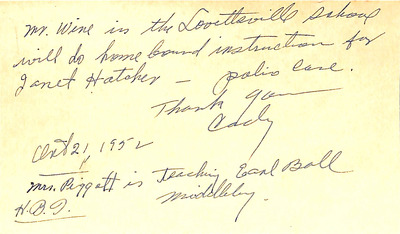 Mr. Wine in the Lovettsville School
will do home bound instruction for
Janet Hatcher — polio case.
Thank you
Oct 21, 1952
Mrs. Piggott is teaching Earl Ball
H.B.I. Middleby.